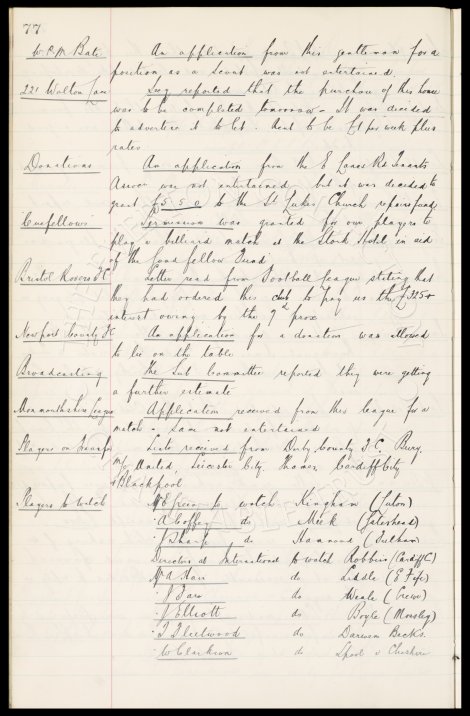 77
W.P.M. Bate An application from this gentleman for a
position as a Scout was not entertained.
221 Walton Lane Secy reported that the purchase of this house
was to be completed tomorrow. It was decided
to advertise it to let. Rent to be £1 per week plus
rates
Donations An application from the E Lancs Rd Tenants
Assoc was not entertained but it was decided to
grant £5.5.0 to the St Lukes Church repairs fund
Cuefellows Permission was granted for our players to
play a billiard match at the Stork Hotel in aid
of the Goodfellow Fund.
Bristol Rovers F.C Letter read from Football League stating that
they had ordered this club to pay us the £325 +
interest owing by the 9th prox
Newport County F.C An application for a donation was allowed
to lie on the table
Broadcasting The Sub Committee reported they were getting
a further estimate
Monmouthshire League Application received from this league for a
match - same not entertained
Players on transfer Lists received from Derby County F.C, Bury,
M/c United, Leicester City, Thames, Cardiff City
& Blackpool
Players to watch Mr E Green to watch Kingham (Luton)
" A Coffey do Meek (Gateshead)
" J Sharp do Hammond (Fulham)
Directors at International to watch Robbins (Cardiff C)
Mr A Hair do Liddle (E Fife)
" J Fare do Weale (Crewe)
" J Elliott do Boyle (Mossley)
" T Fleetwood do Darwen Backs.
" W Clarkson do L'pool v Cheshire